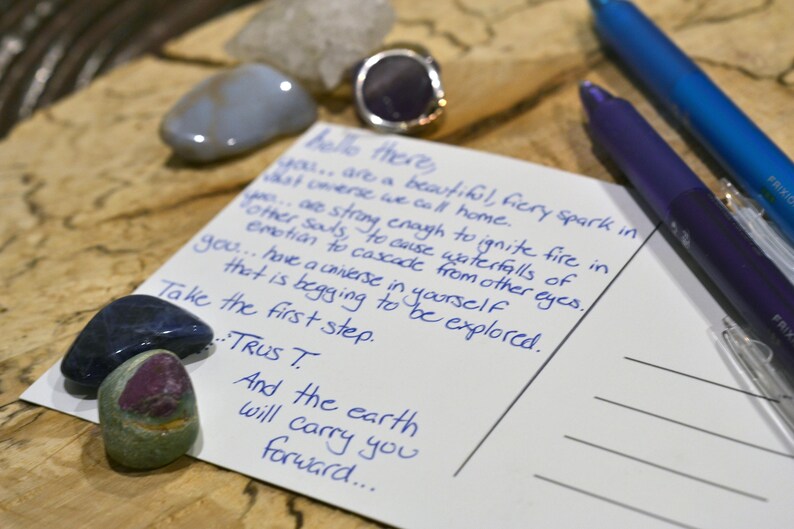 hello there,
you... are a beautiful, fiery spark in
vast universe we call home.
you... are strong enough to ignite fire in
other souls, to cause waterfalls of
emotion to cascade from other eyes.
you... have a universe in yourself
that is begging to be explored.
Take the first step.
...TRUST.
And the earth
will carry you
forward...
FRIXION
FRIXI